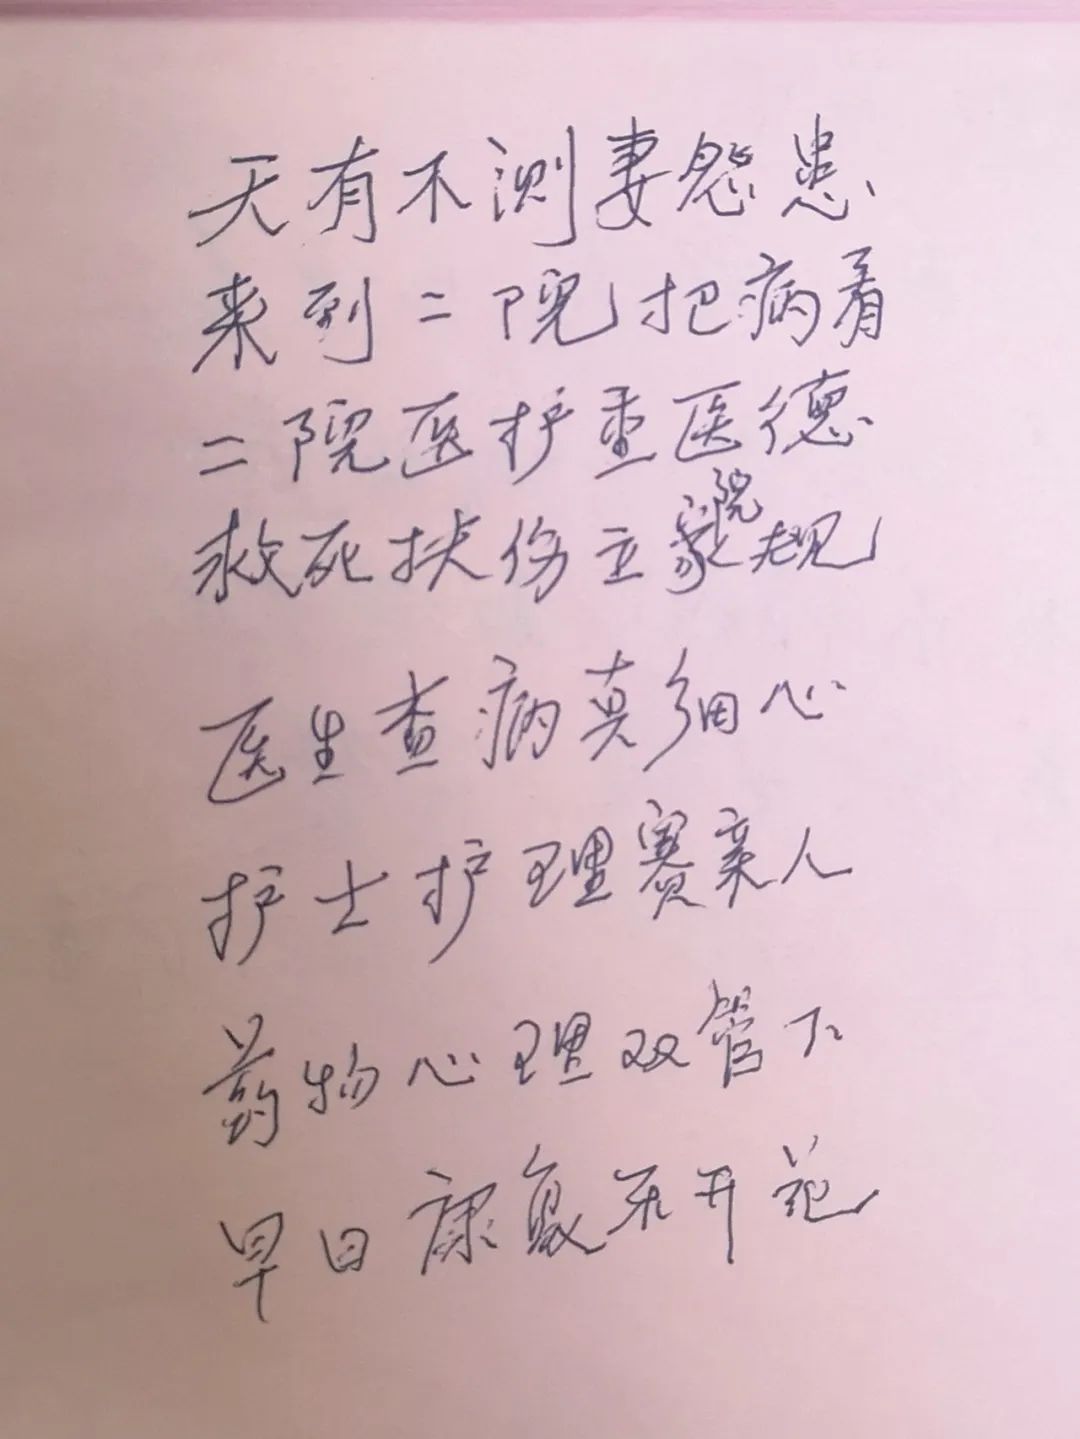 天有不测妻患
来到二院把病看
二院医护重医德
救死扶伤立院规
医生查病真细心
护士护理赛亲人
药物心理双管下
早日康复乐开花